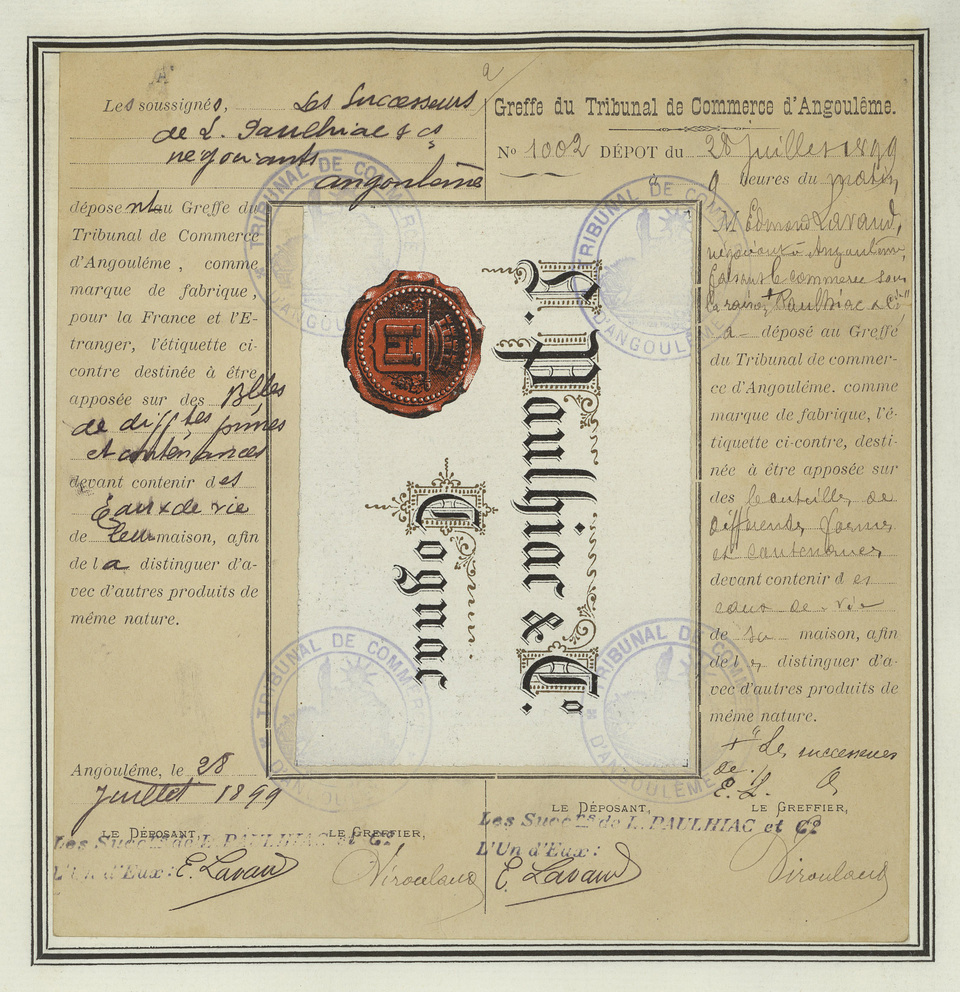 Les soussignés, Les Successeurs
de L. Paulhiac & Co
négociants
angoulême
déposent au Greffe du
Tribunal de Commerce
d'Angoulême, comme
marque de fabrique,
pour la France et l'E-
tranger, l'étiquette ci-
contre destinée à être
apposée sur des Blles
de difftes formes
et contenances
devant contenir des
Eaux de vie
de leur maison, afin
de la distinguer d'a-
vec d'autres produits de
même nature.
Angoulême, le 28
Juillet 1899
LE DÉPOSANT, LE GREFFIER,
Les Succrs de L. PAULHIAC et Co
L'Un d'Eux : E. Lavaud
Greffe du Tribunal de Commerce d'Angoulême.
No 1002 DÉPOT du 28 Juillet 1899
9 heures du matin,
M Edmond Lavaud,
négociant à Angoulême,
faisant le commerce sous
la raison + Paulhiac & Cie"
a déposé au Greffe
du Tribunal de commer-
ce d'Angoulême. comme
marque de fabrique, l'é-
tiquette ci-contre, desti-
née à être apposée sur
des bouteilles de
différentes formes
et contenances
devant contenir des
eaux de vie
de sa maison, afin
de les distinguer d'a-
vec d'autres produits de
même nature.
+ "Les successeurs
de"/.
E. L.
LE DÉPOSANT, LE GREFFIER,
Les Succrs de L. PAULHIAC et Co
L'Un d'Eux :
E. Lavaud
L. Paulhiac & Co.
Cognac
TRIBUNAL DE COMMERCE
D'ANGOULÊME
TRIBUNAL DE COMMERCE
D'ANGOULÊME
TRIBUNAL DE COMMERCE
D'ANGOULÊME
TRIBUNAL DE COMMERCE
D'ANGOULÊME